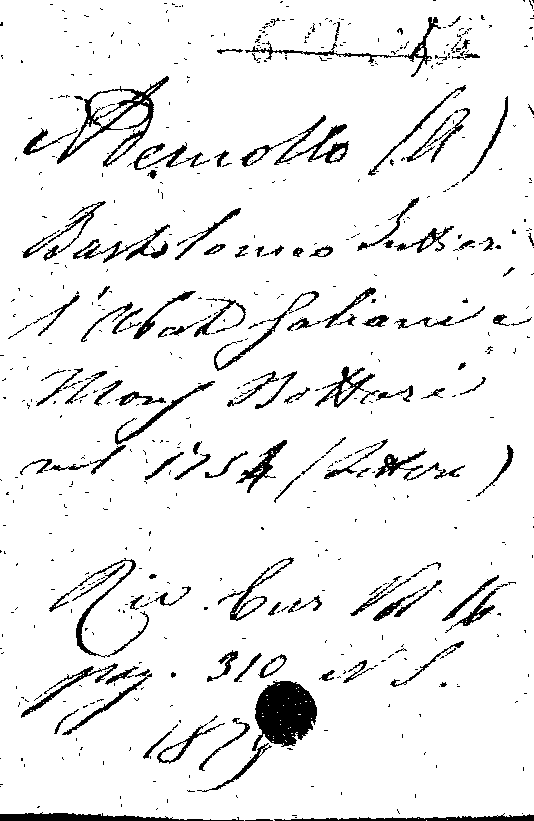 Ademollo (A)
Bartolomeo Intieri,
l'Abate Galiani e
Mons Bottari
nel 1754 (Lettere)
Riv. Eur Vol 16.
pag. 310 N S.
1879